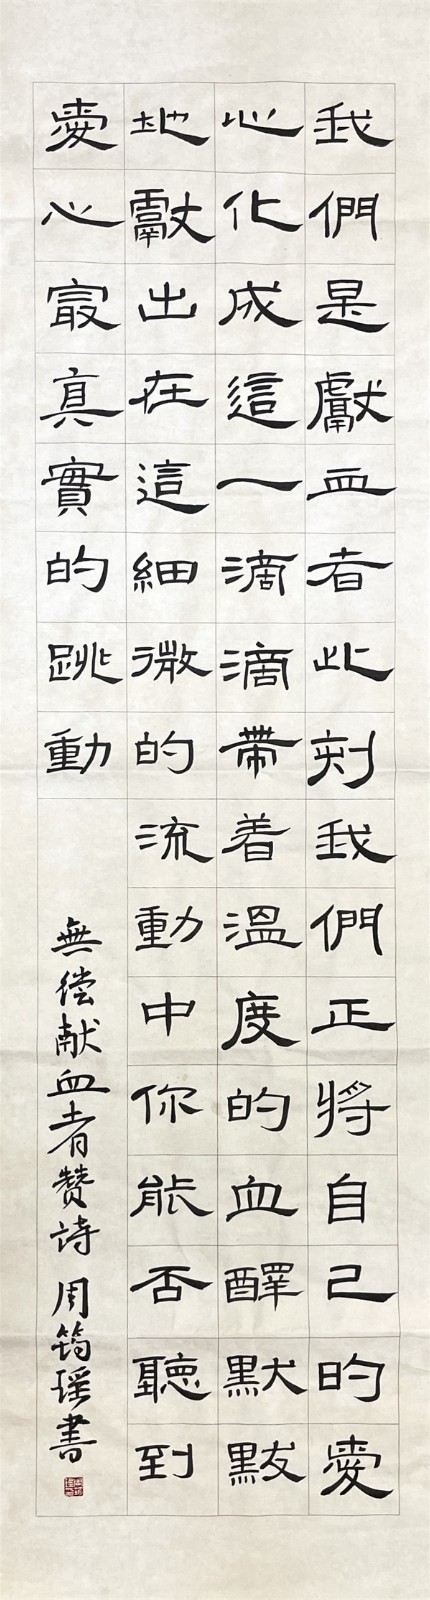 我們是獻血者此刻我們正將自己的愛
心化成這一滴滴帶着溫度的血醳默默
地獻出在這細微的流動中你能否聽到
愛心最真實的跳動
無偿献血者赞诗 周筠瑶書